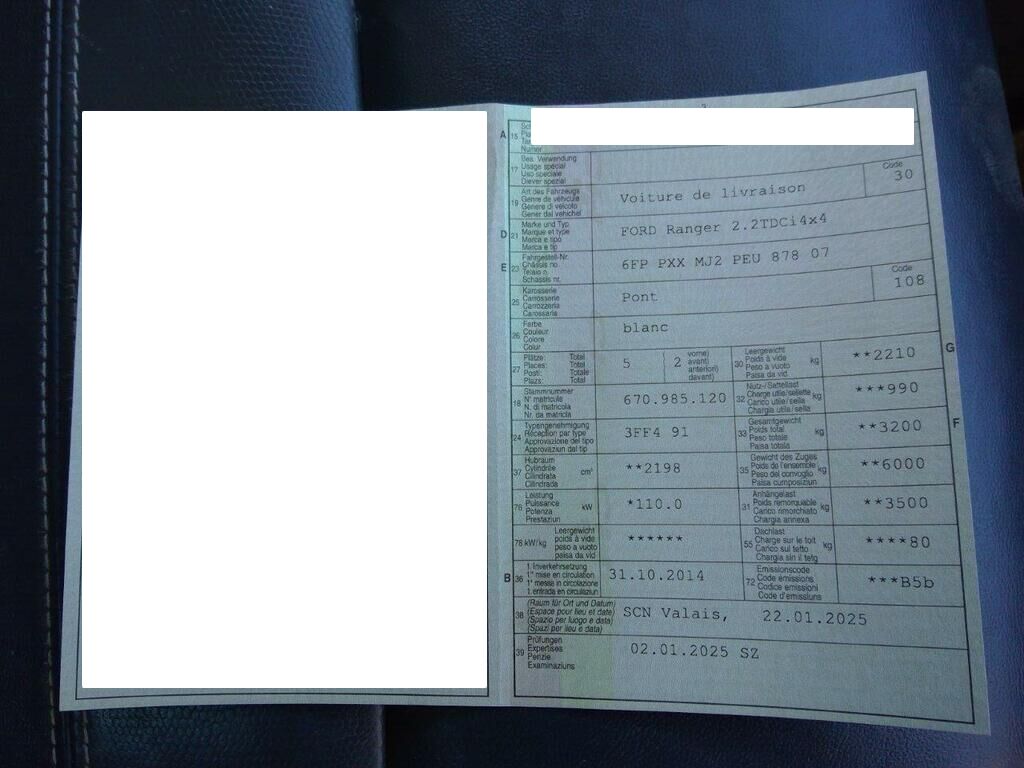 3
A 15 Sch
Pla
Tar
Numer
17 Bes. Verwendung
Usage spécial
Uso speciale
Diever spezial
19 Art des Fahrzeugs
Genre de véhicule
Genere di veicolo
Gener dal vehichel
Voiture de livraison
Code
30
D 21 Marke und Typ
Marque et type
Marca e tipo
Marca e tip
FORD Ranger 2.2TDCi4x4
E 23 Fahrgestell-Nr.
Châssis no
Telaio n.
Schassis nr.
6FP PXX MJ2 PEU 878 07
25 Karosserie
Carrosserie
Carrozzeria
Carossaria
Pont
Code
108
26 Farbe
Couleur
Colore
Colur
blanc
27 Plätze: Total
Places: Total
Posti: Totale
Plazs: Total
5
2 vorne)
avant)
anteriori)
davant)
30 Leergewicht
Poids à vide
Peso a vuoto
Paisa da vid
kg
**2210
G
18 Stammnummer
N° matricule
N. di matricola
Nr. da matricla
670.985.120
32 Nutz-/Sattellast
Charge utile/sellette
Carico utile/sella
Chargia utila/sella
kg
***990
24 Typengenehmigung
Réception par type
Approvazione del tipo
Approvaziun dal tip
3FF4 91
33 Gesamtgewicht
Poids total
Peso totale
Paisa totala
kg
**3200
F
37 Hubraum
Cylindrée
Cilindrata
Cilindrada
cm³
**2198
35 Gewicht des Zuges
Poids de l'ensemble
Peso del convoglio
Paisa cumposiziun
kg
**6000
76 Leistung
Puissance
Potenza
Prestaziun
kW
*110.0
31 Anhängelast
Poids remorquable
Carico rimorchiato
Chargia annexa
kg
**3500
78 kW/kg
Leergewicht
poids à vide
peso a vuoto
paisa da vid
******
55 Dachlast
Charge sur le toit
Carico sul tetto
Chargia sin il tetg
kg
****80
B 36 1. Inverkehrsetzung
1re mise en circulation
1a messa in circolazione
1. entrada en circulaziun
31.10.2014
72 Emissionscode
Code émissions
Codice emissioni
Code d'emissiuns
***B5b
38 (Raum für Ort und Datum)
(Espace pour lieu et date)
(Spazio per luogo e data)
(Spazi per lieu e data)
SCN Valais, 22.01.2025
39 Prüfungen
Expertises
Perizie
Examinaziuns
02.01.2025 SZ